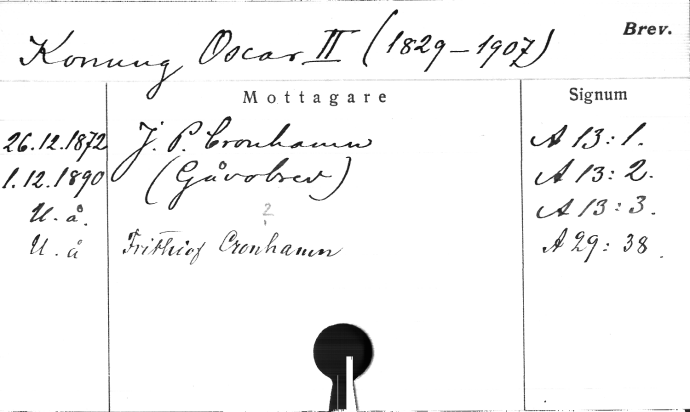 Brev.
Konung Oscar II (1829–1907)
Mottagare Signum
26.12.1872 J. P. Cronhamn A 13:1.
1.12.1890 (Gåvobrev) A 13:2.
U. å. ? A 13:3.
U. å Frithiof Cronhamn A 29:38.